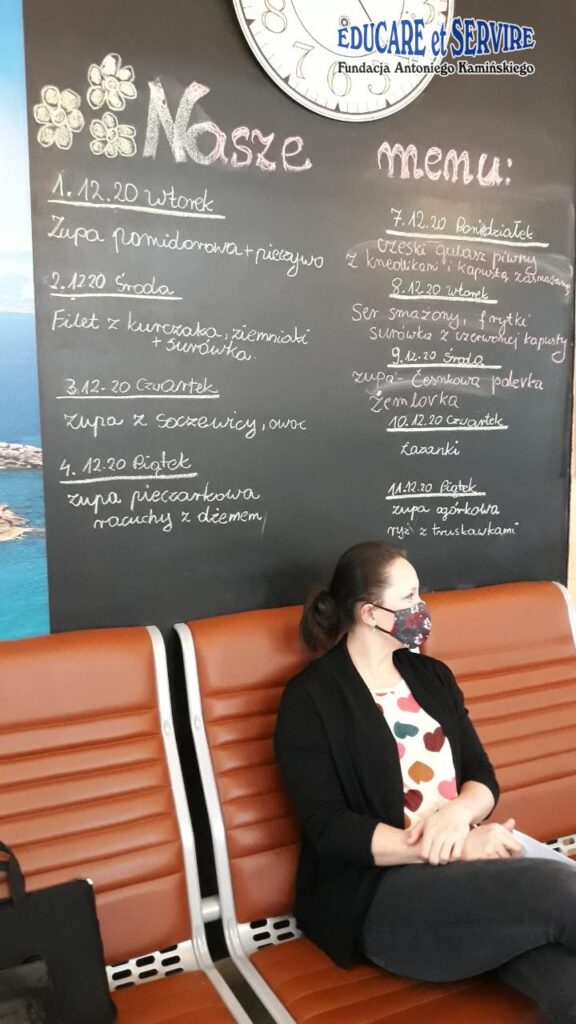 EDUCARE et SERVIRE
Fundacja Antoniego Kamińskiego
Nasze menu:
1.12.20 Wtorek
Zupa pomidorowa + pieczywo
2.1220 Środa
Filet z kurczaka, ziemniaki
+ surówka.
3.12-20 Czwartek
Zupa z soczewicy, owoc
4.12.20 Piątek
zupa pieczarkowa
racuchy z dżemem
7.12.20 Poniedziałek
czeski gulasz piwny
z knedlikami i kapustą zasmażaną
8.12.20 Wtorek
Ser smażony, frytki
surówka z czerwonej kapusty
9.12-20 Środa
zupa - Česnkova polevka
Žemlovka
10.12.20 Czwartek
Łazanki
11.12.20 Piątek
zupa ogórkowa
ryż z truskawkami